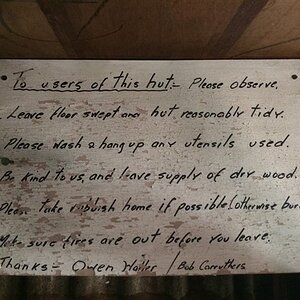 To users of this hut:- Please observe.
Leave floor swept and hut reasonably tidy.
Please wash & hang up any utensils used.
Be kind to us, and leave supply of dry wood.
Please take rubbish home if possible (otherwise bur
Make sure fires are out before you leave.
Thanks- Owen / Bob Carruthers